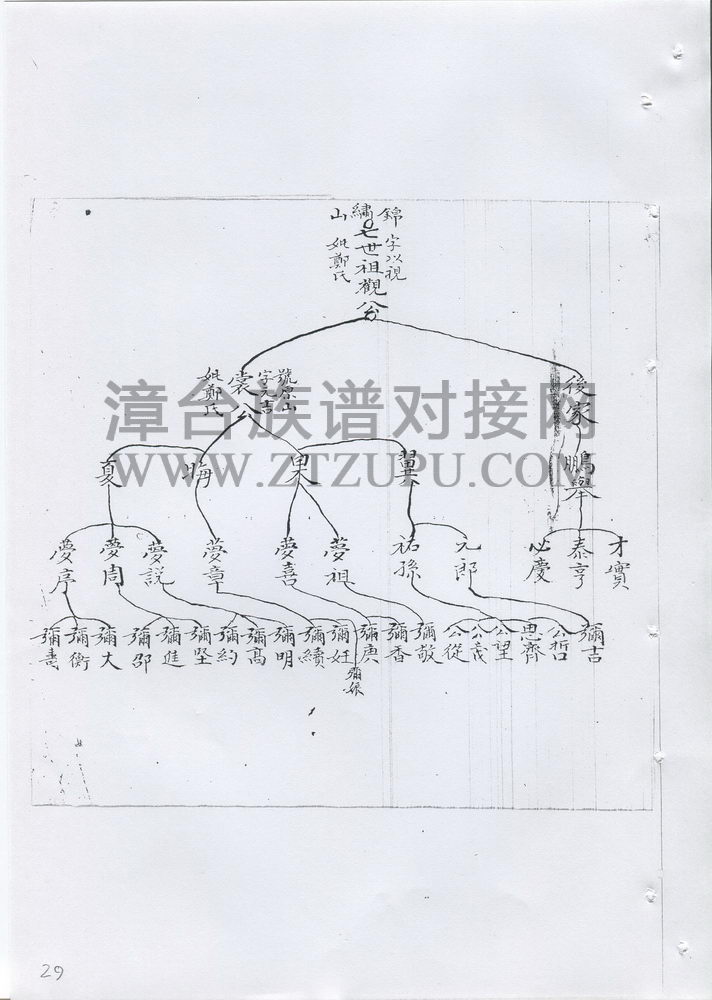 錦繡山
七世祖觀公
字以視
妣鄭氏
後家
鵬舉
裳公
妣鄭氏
翼
果
晦
夏
才寶
泰亨
必慶
元郎
祐孫
夢祖
夢喜
夢章
夢説
夢周
夢序
彌吉
公哲
思齊
公望
公義
公從
彌敬
彌香
彌庚
彌妊
彌續
彌明
彌高
彌約
彌堅
彌進
彌邵
彌大
彌衡
彌壽
漳台族谱对接网
WWW.ZTZUPU.COM
29